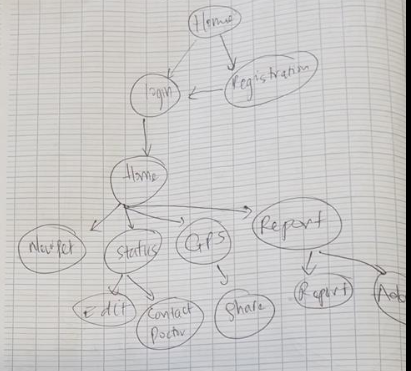 Home
Registration
Login
Home
New Pet
Status
GPS
Report
Edit
Contact
Doctor
Share
Report